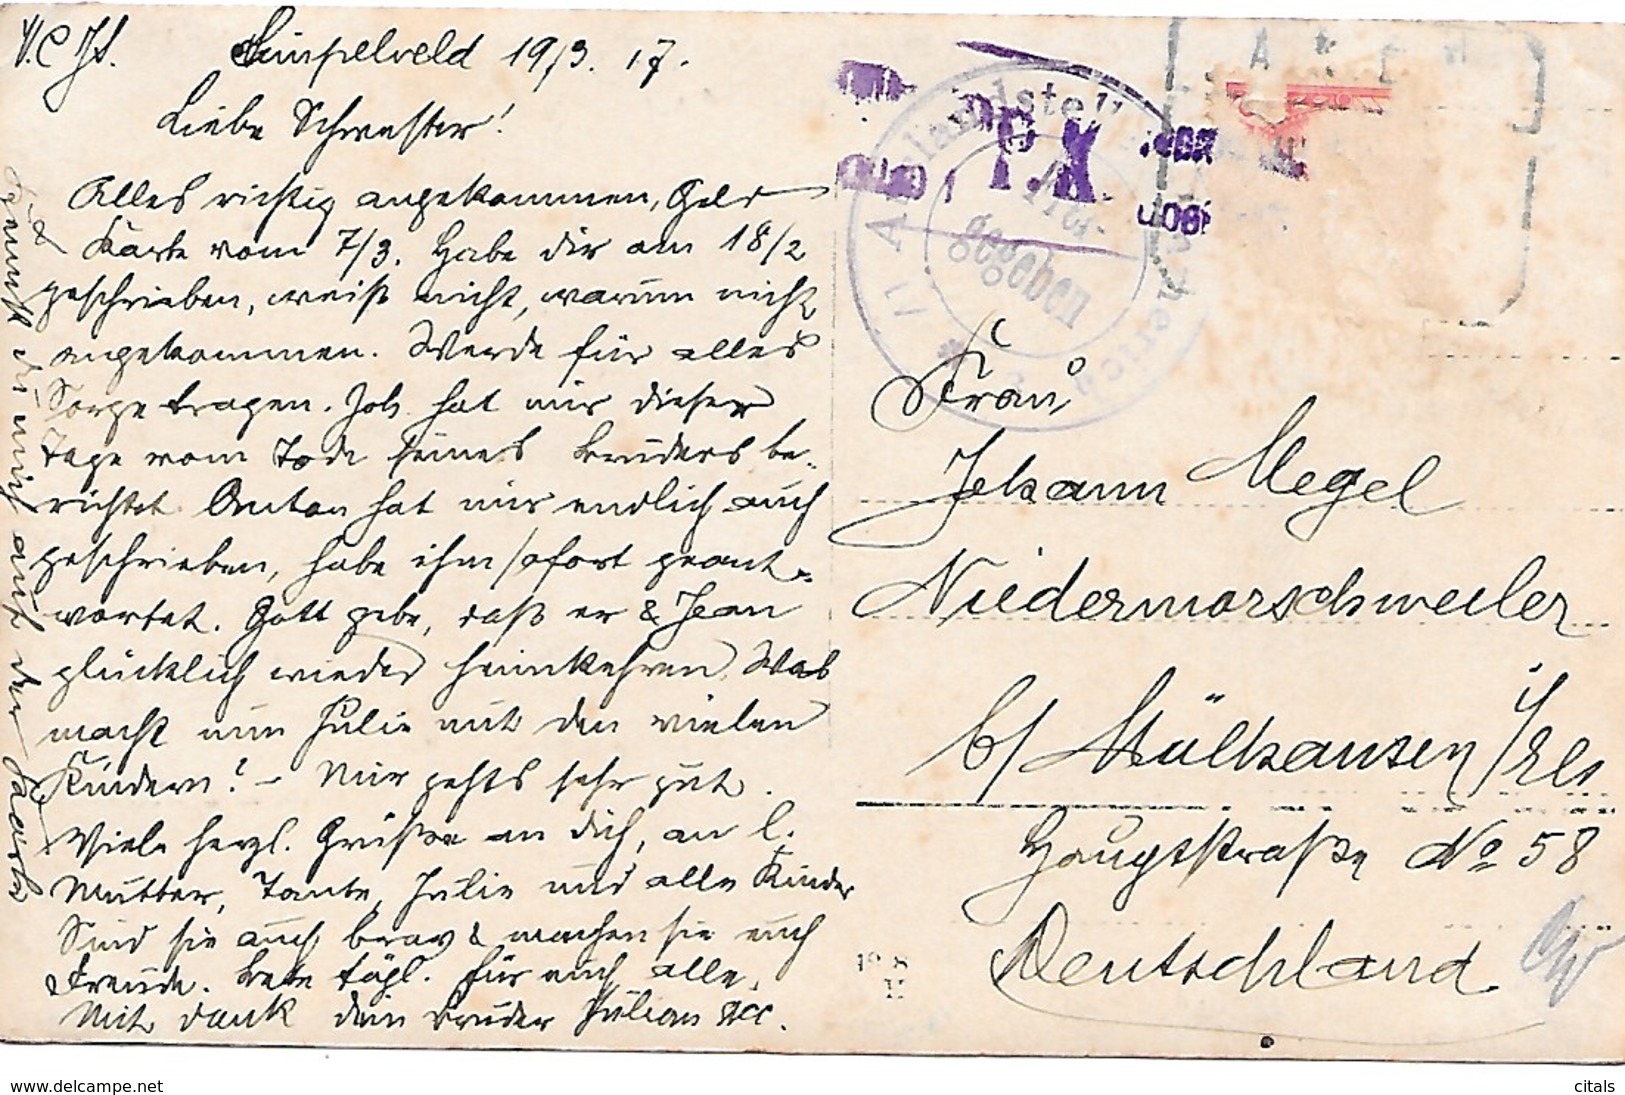 V. C. Jt.
Simpelveld 19/3. 17.
Liebe Schwester!
Alles richtig angekommen, Geld
& Karte vom 7/3. Habe dir am 18/2
geschrieben, weiß nicht, warum nicht
angekommen. Werde für alles
Sorge tragen. Joh. hat mir dieser
Tage vom Tode seines Bruders be-
richtet. Anton hat mir endlich auch
geschrieben, habe ihm sofort geant-
wortet. Gott gebe, daß er & Jean
glücklich wieder heimkehren. Was
macht nun Julie mit den vielen
Kindern? – Mir gehts sehr gut.
Viele herzl. Grüße an dich, an l.
Mutter, Tante, Julie und alle Kinder
Sind sie auch brav & machen sie euch
Freude. Bete tägl. für euch alle.
Mit Dank dein Bruder Julian
du mich auf der Karte
Auslandstelle
Frei-
gegeben
Frau
Johann Megel
Niedermorschweiler
b/ Mülhausen i/Els
Hauptstraße No 58
Deutschland
www.delcampe.net
citals